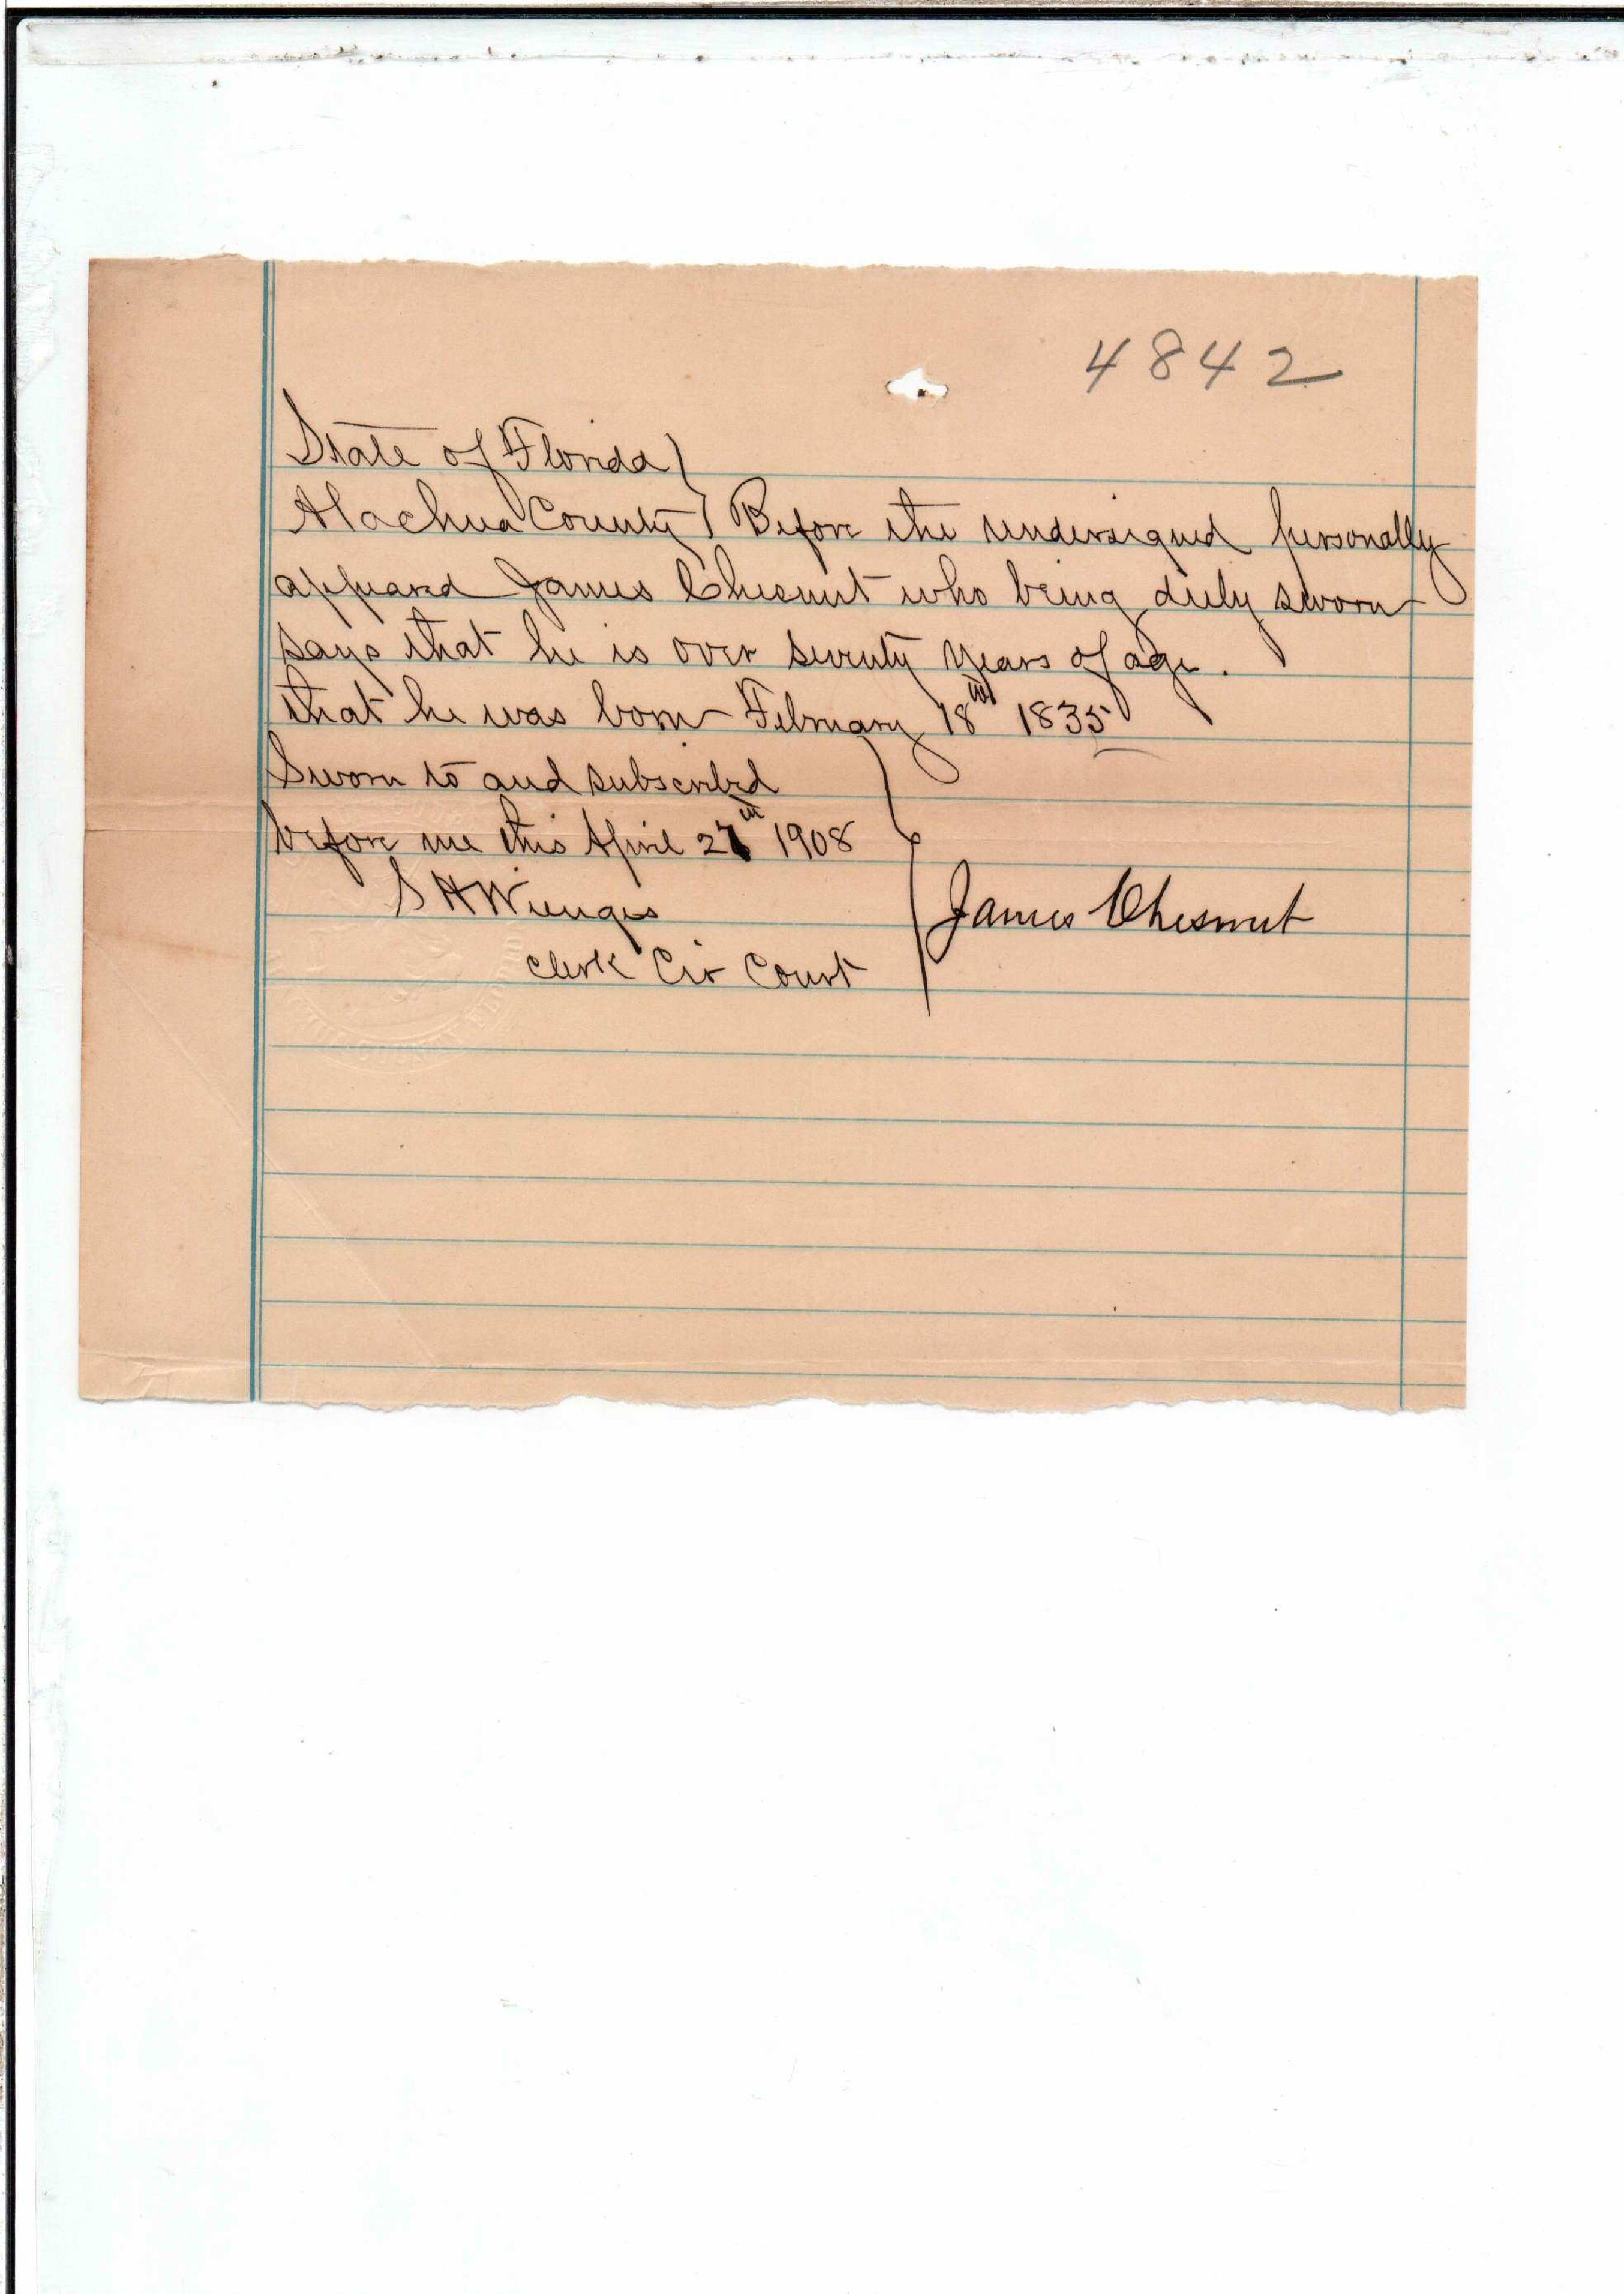 4842
State of Florida
Alachua County Before the undersigned personally
appeared James Chesnut who being duly sworn
says that he is over seventy years of age.
that he was born February 18th 1835
Sworn to and subscribed
before me this April 27th 1908
S H Wienges
Clerk Cir Court
James Chesnut